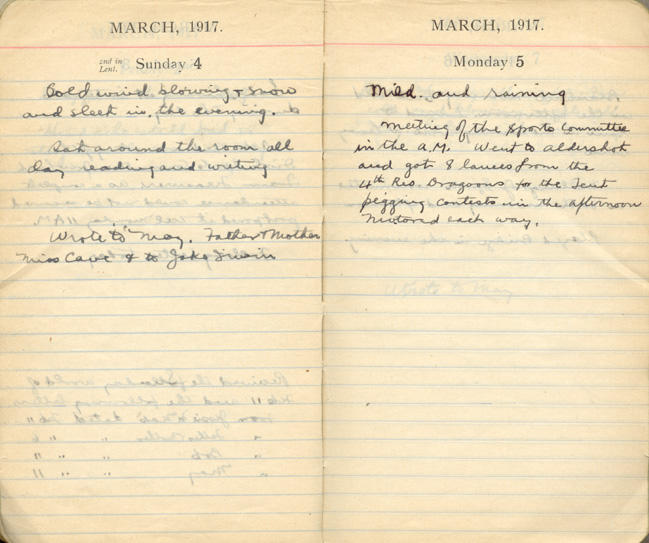 MARCH, 1917.
2nd in Lent. Sunday 4
Cold wind blowing & snow
and sleet in the evening.
Sat around the room all
day reading and writing
Wrote to May. Father & Mother
Miss Cave & to Jake Irwin
MARCH, 1917.
Monday 5
Mild. and raining
Meeting of the Sports Committee
in the A.M. Went to Aldershot
and got 8 lances from the
4th Res. Dragoons for the Tent
pegging contests in the afternoon
Motored each way.
Wrote to May